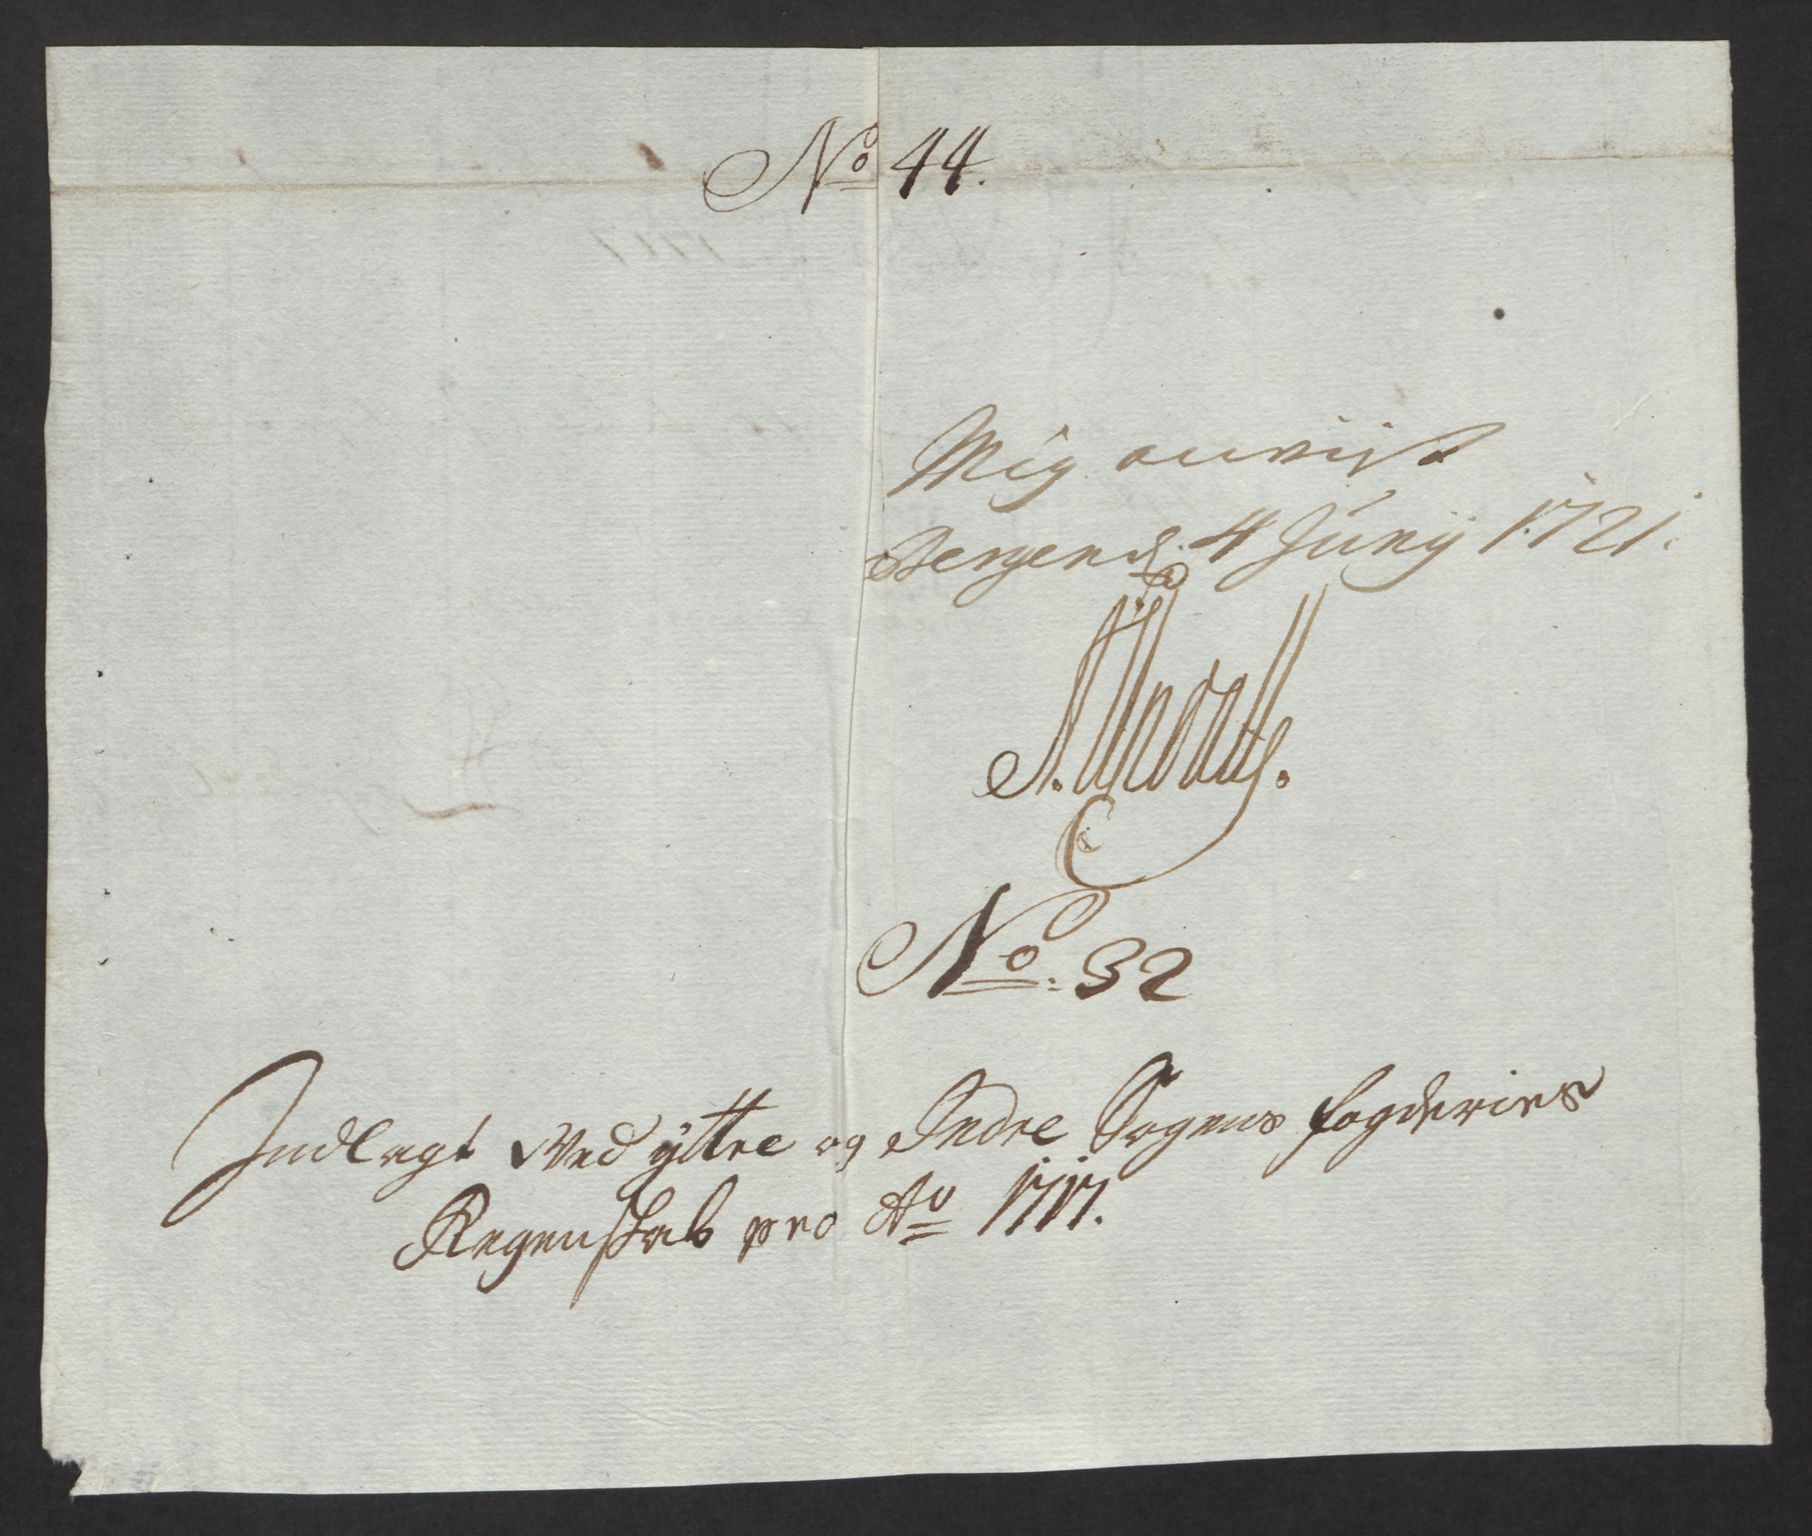 No 44.
Mig anvist
Bergen d. 4 Junij 1721.
No. 32
Indlagt Ved yttre og Indre Sogens fogderies
Regenskab pro Ao 1717.